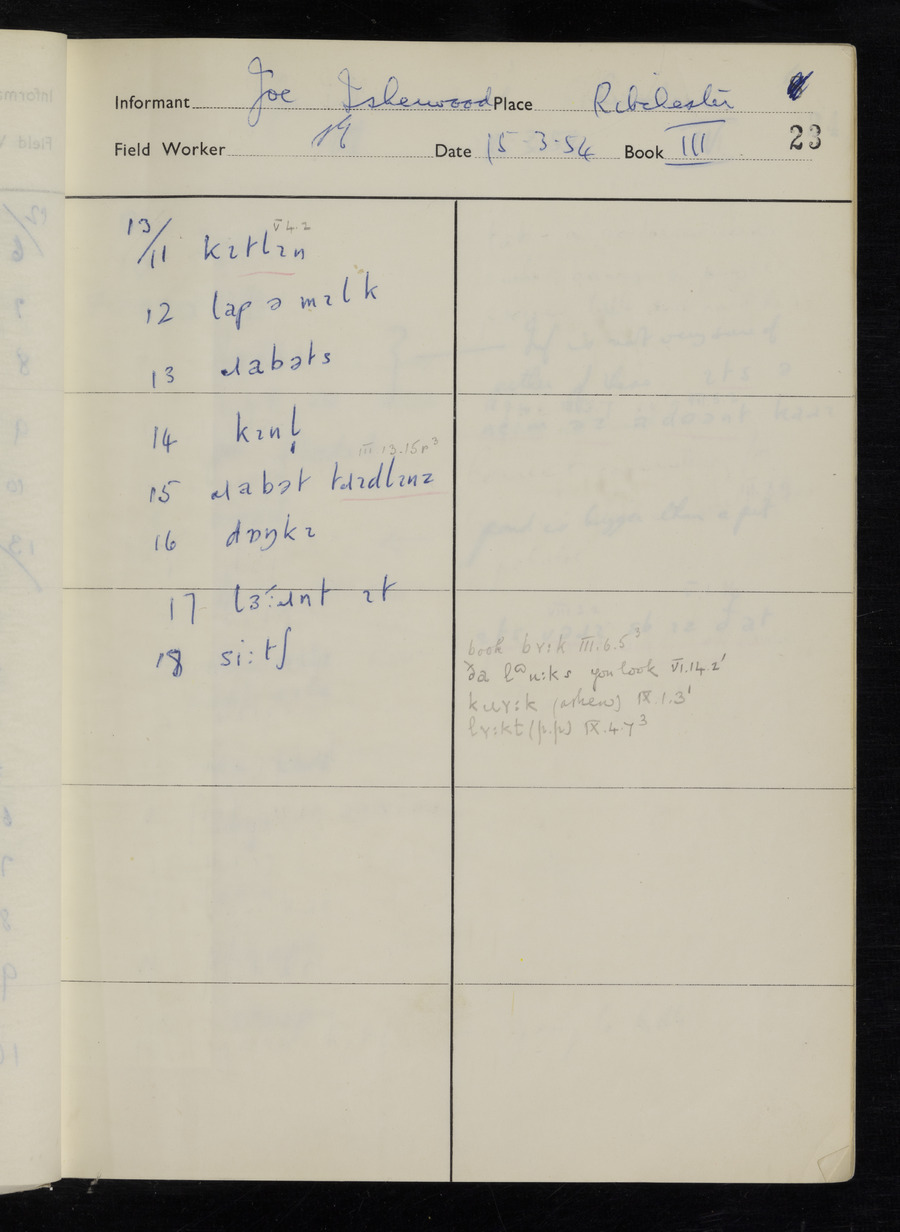 Informant Joe Isherwood Place Ribchester
23
Field Worker Date 15·3·54 Book III
V 4.2
13/11 kɪtlɪn
12 lap ə mɪlk
13 ɹabəts
14 kɪnl̩
III 13.15p³
15 ɹabət tɹɪdlɪnz
16 dɒŋkɪ
17 lɜ:ɹnt ɪt
18 si:tʃ
book bʏ:k III.6.5³
ðə you look VI.14.2'
IX.1.3'
lʏ:kt (p.p) IX.4.7³